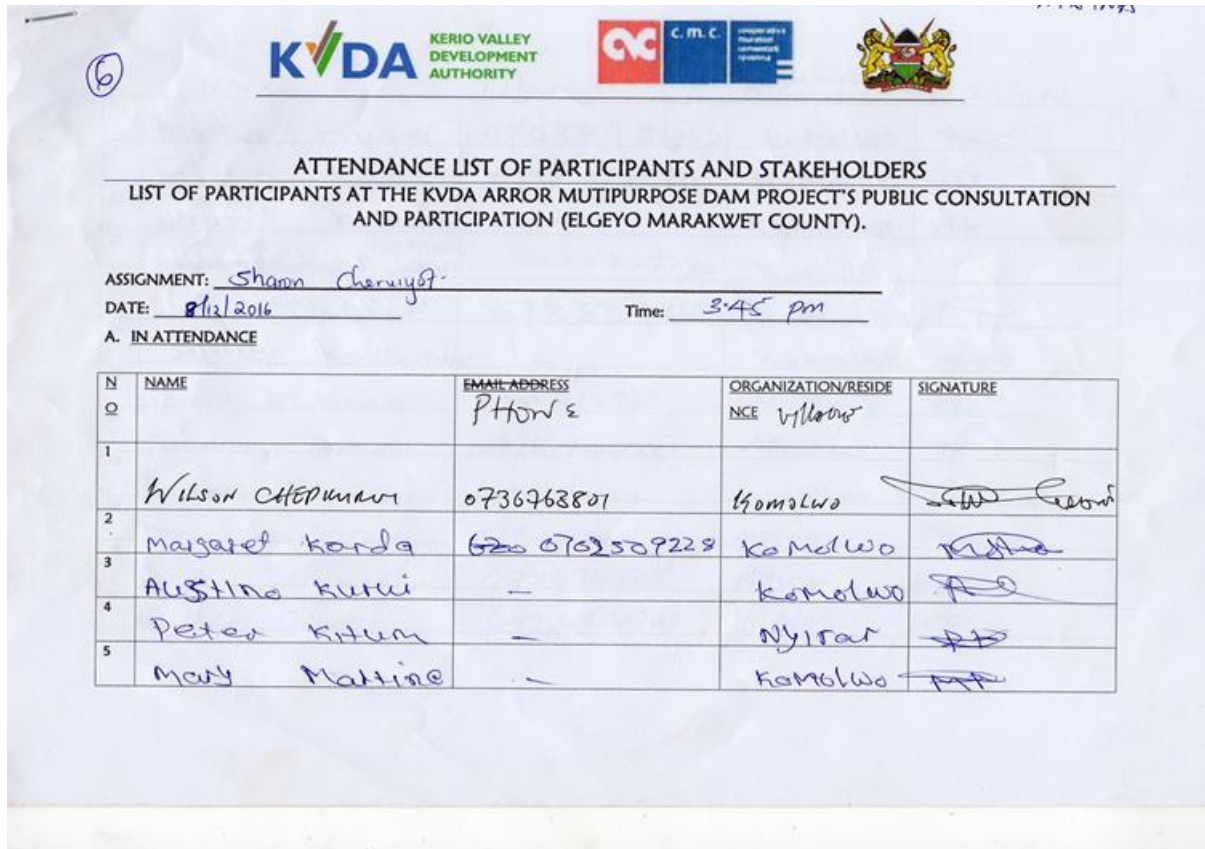 6
KVDA KERIO VALLEY
DEVELOPMENT
AUTHORITY
c.m.c.
ATTENDANCE LIST OF PARTICIPANTS AND STAKEHOLDERS
LIST OF PARTICIPANTS AT THE KVDA ARROR MUTIPURPOSE DAM PROJECT'S PUBLIC CONSULTATION
AND PARTICIPATION (ELGEYO MARAKWET COUNTY).
ASSIGNMENT: Sharon
DATE: 8/12/2016 Time: 3:45 pm
A. IN ATTENDANCE
NO NAME EMAIL ADDRESS PHONE ORGANIZATION/RESIDENCE Village SIGNATURE
1 WILSON 0736763801 Komolwo
2 Margaret Korda 0702509228 Komolwo
3 Austino Kurui - Komolwo
4 Peter Kitum - Nyirar
5 Mary Martine - Komolwo